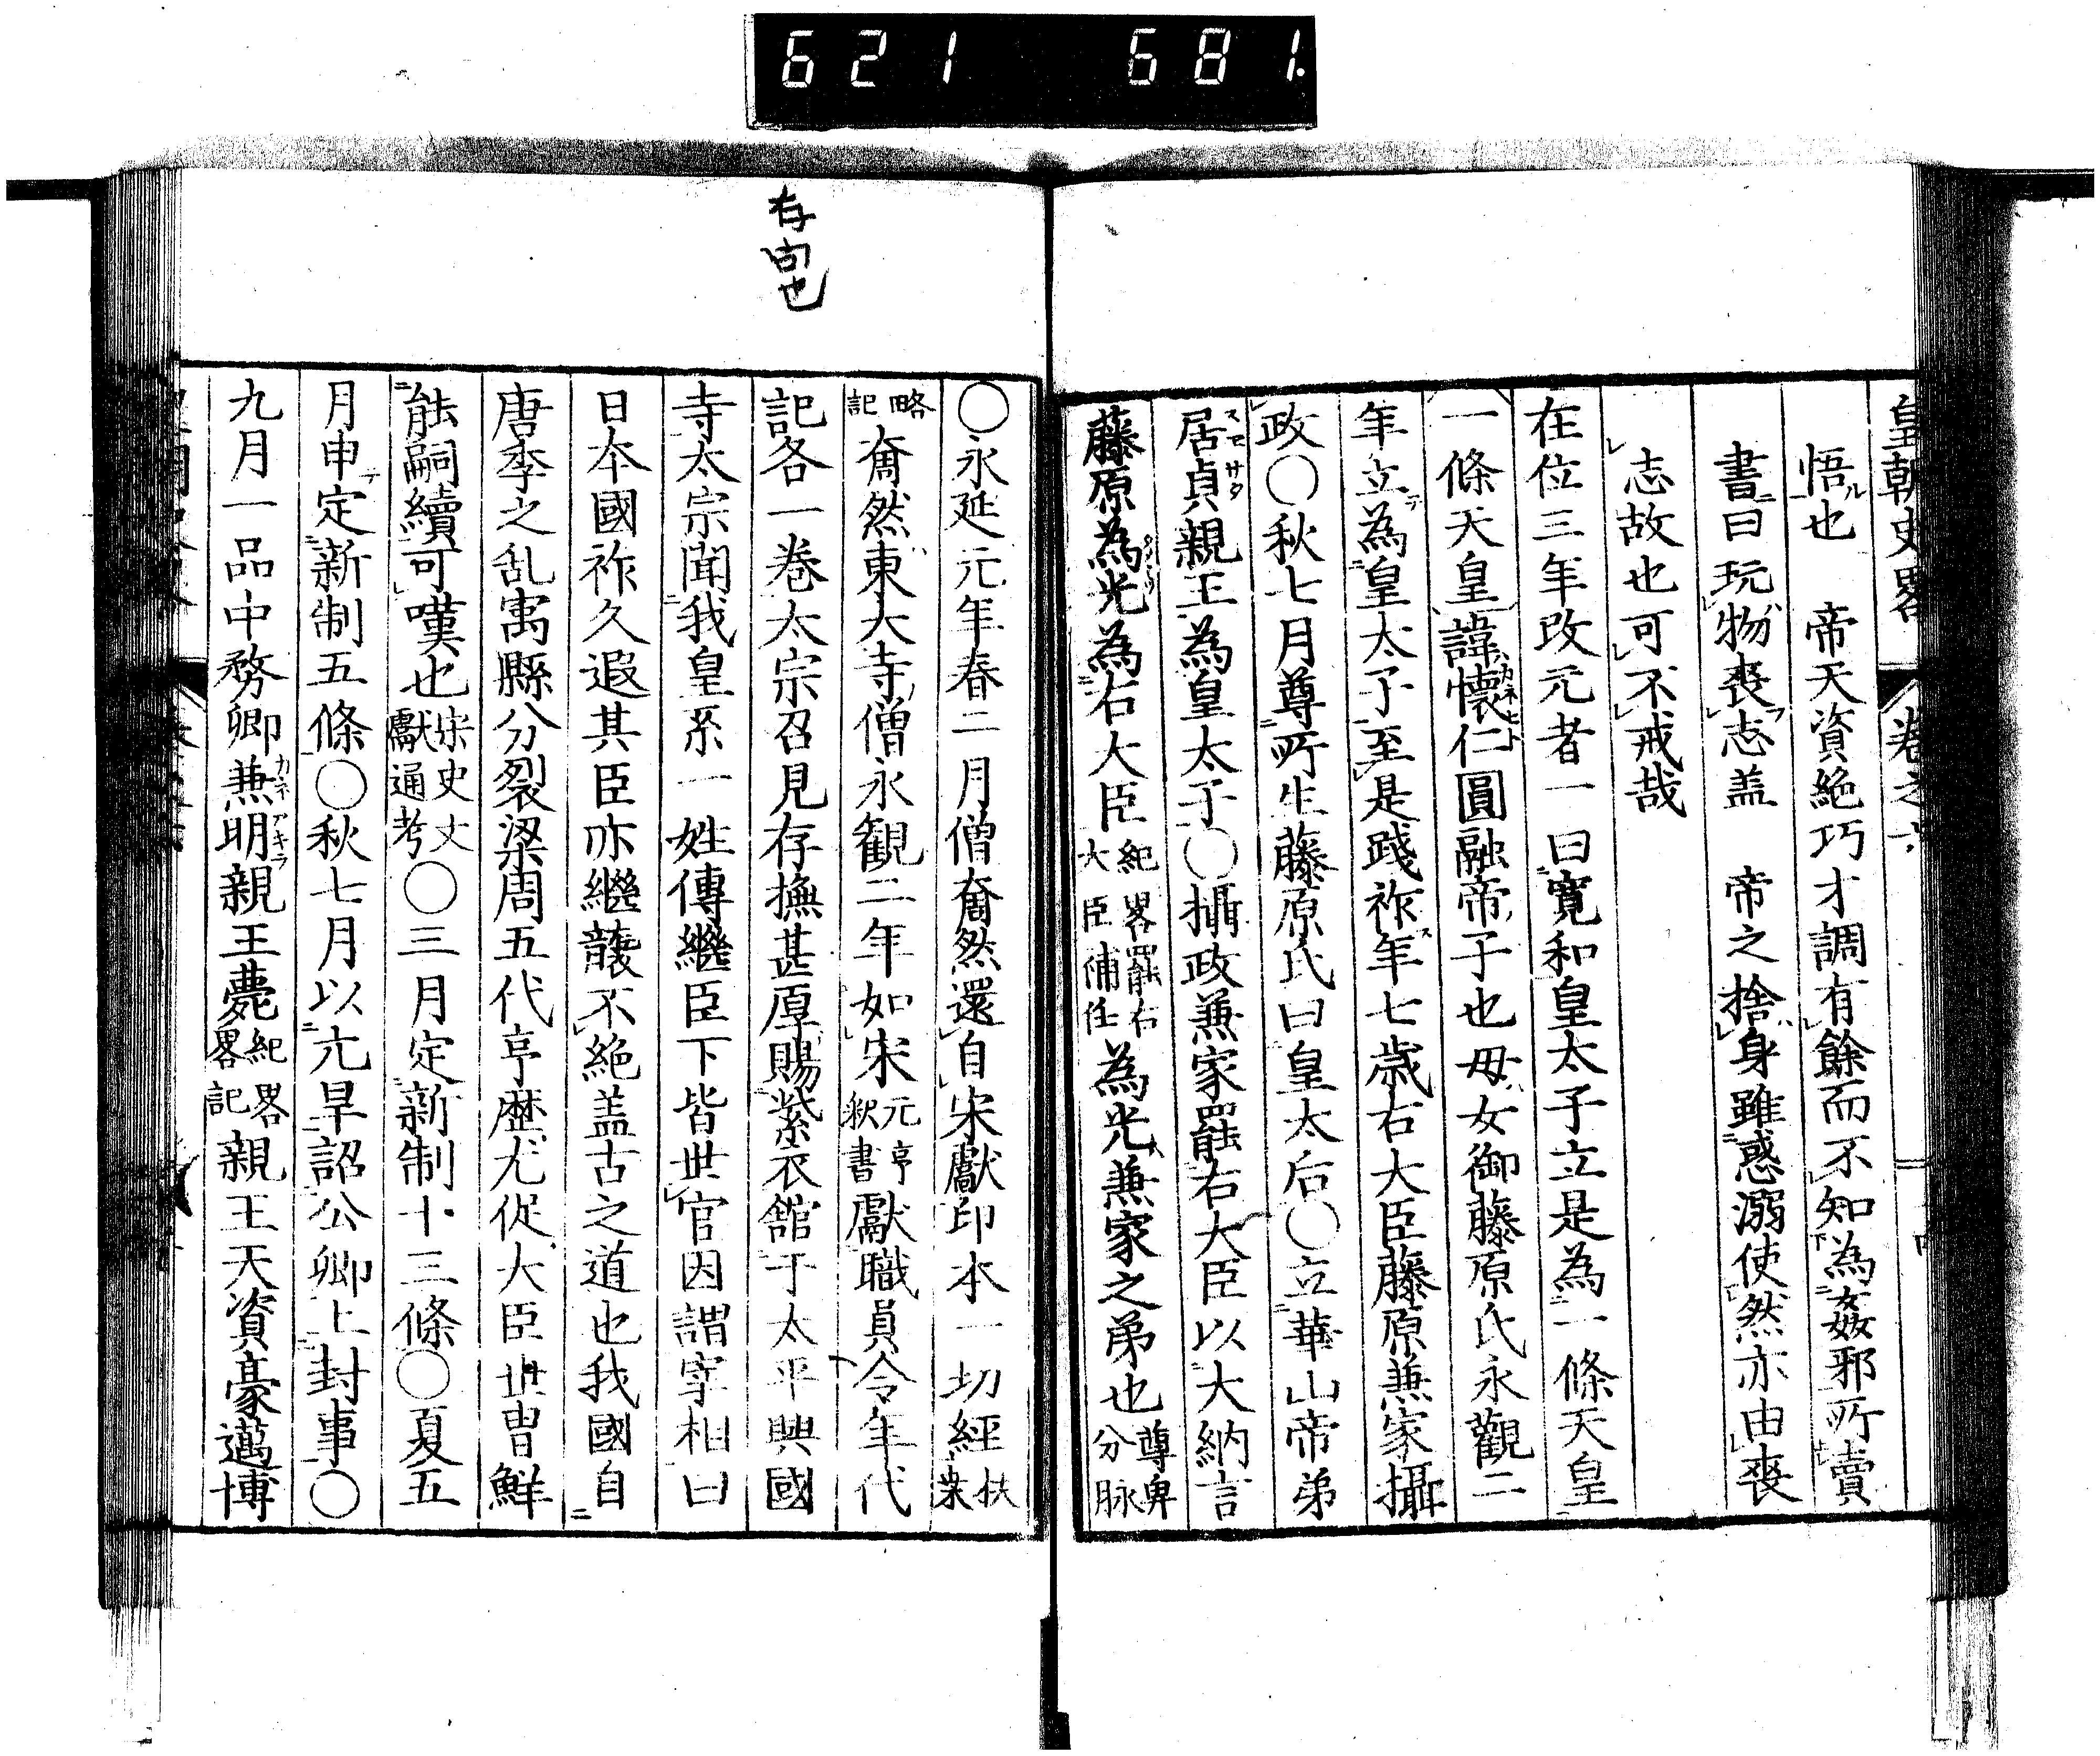 621 681.
皇朝史畧 卷之六
悟也 帝天資絶巧才調有餘而不知為姦邪所賣
書曰玩物喪志盖 帝之捨身雖惑溺使然亦由喪
志故也可不戒哉
在位三年改元者一曰寛和皇太子立是為一條天皇
一條天皇諱懷仁圓融帝子也母女御藤原氏永觀二
年立為皇太子至是踐祚年七歳右大臣藤原兼家攝
政〇秋七月尊所生藤原氏曰皇太后〇立華山帝弟
居貞親王為皇太子〇攝政兼家罷右大臣以大納言
藤原為光為右大臣紀畧罷右大臣補任為光兼家之弟也尊卑分脉
存問也
〇永延元年春二月僧奝然還自宋獻印本一切經扶桒
略記奝然東大寺僧永観二年如宋元亨釈書獻職員令年代
記各一巻太宗召見存撫甚厚賜紫衣館于太平興國
寺太宗聞我皇系一姓傳繼臣下皆世官因謂宰相曰
日本國祚久遐其臣亦繼襲不絶盖古之道也我國自
唐季之乱寓縣分裂梁周五代享歴尤促大臣世冑鮮
能嗣續可嘆也宋史文獻通考〇三月定新制十三條〇夏五
月申定新制五條〇秋七月以亢旱詔公卿上封事〇
九月一品中務卿兼明親王薨紀畧畧記親王天資豪邁博